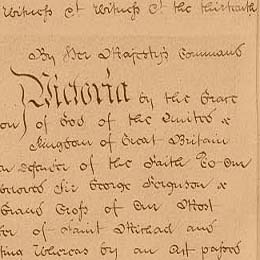 Witness &t Witness &t the thirteenth
By Her Majestys Command
Victoria by the Grace
of God of the United &
Kingdom of Great Britain
Defender of the Faith To Our
Sir George Ferguson &
Grand Cross of Our Most
of Saint Michael and
Whereas by an Act passed